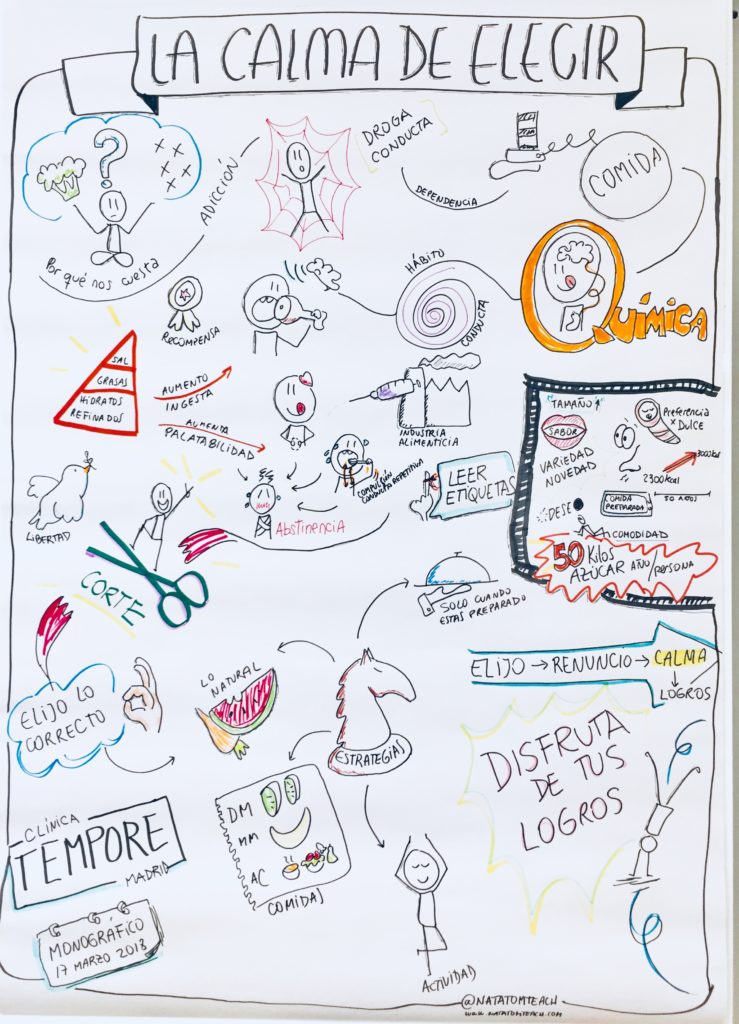 LA CALMA DE ELEGIR
?
Por qué nos cuesta
ADICCIÓN
DROGA
CONDUCTA
DEPENDENCIA
COMIDA
QUÍMICA
HÁBITO
CONDUCTA
RECOMPENSA
SAL
GRASAS
HIDRATOS
REFINADOS
AUMENTO
INGESTA
AUMENTA
PALATABILIDAD
INDUSTRIA
ALIMENTICIA
COMPULSIÓN
CONDUCTA REPETITIVA
Abstinencia
LEER
ETIQUETAS
"TAMAÑO"
SABOR
Preferencia
x DULCE
VARIEDAD
NOVEDAD
3000kcal
2300kcal
COMIDA
PREPARADA
50 AÑOS
DESEO
COMODIDAD
50 Kilos
AZÚCAR AÑO/PERSONA
LIBERTAD
CORTE
SOLO CUANDO
ESTAS PREPARADO
ELIJO → RENUNCIO → CALMA
↓
LOGROS
ELIJO LO
CORRECTO
LO
NATURAL
ESTRATEGIAS
DISFRUTA
DE TUS
LOGROS
DM
MM
AC
COMIDAS
ACTIVIDAD
CLÍNICA
TEMPORE
MADRID
MONOGRÁFICO
17 MARZO 2018
@NATATOMTEACH
www.NATATOMTEACH.COM